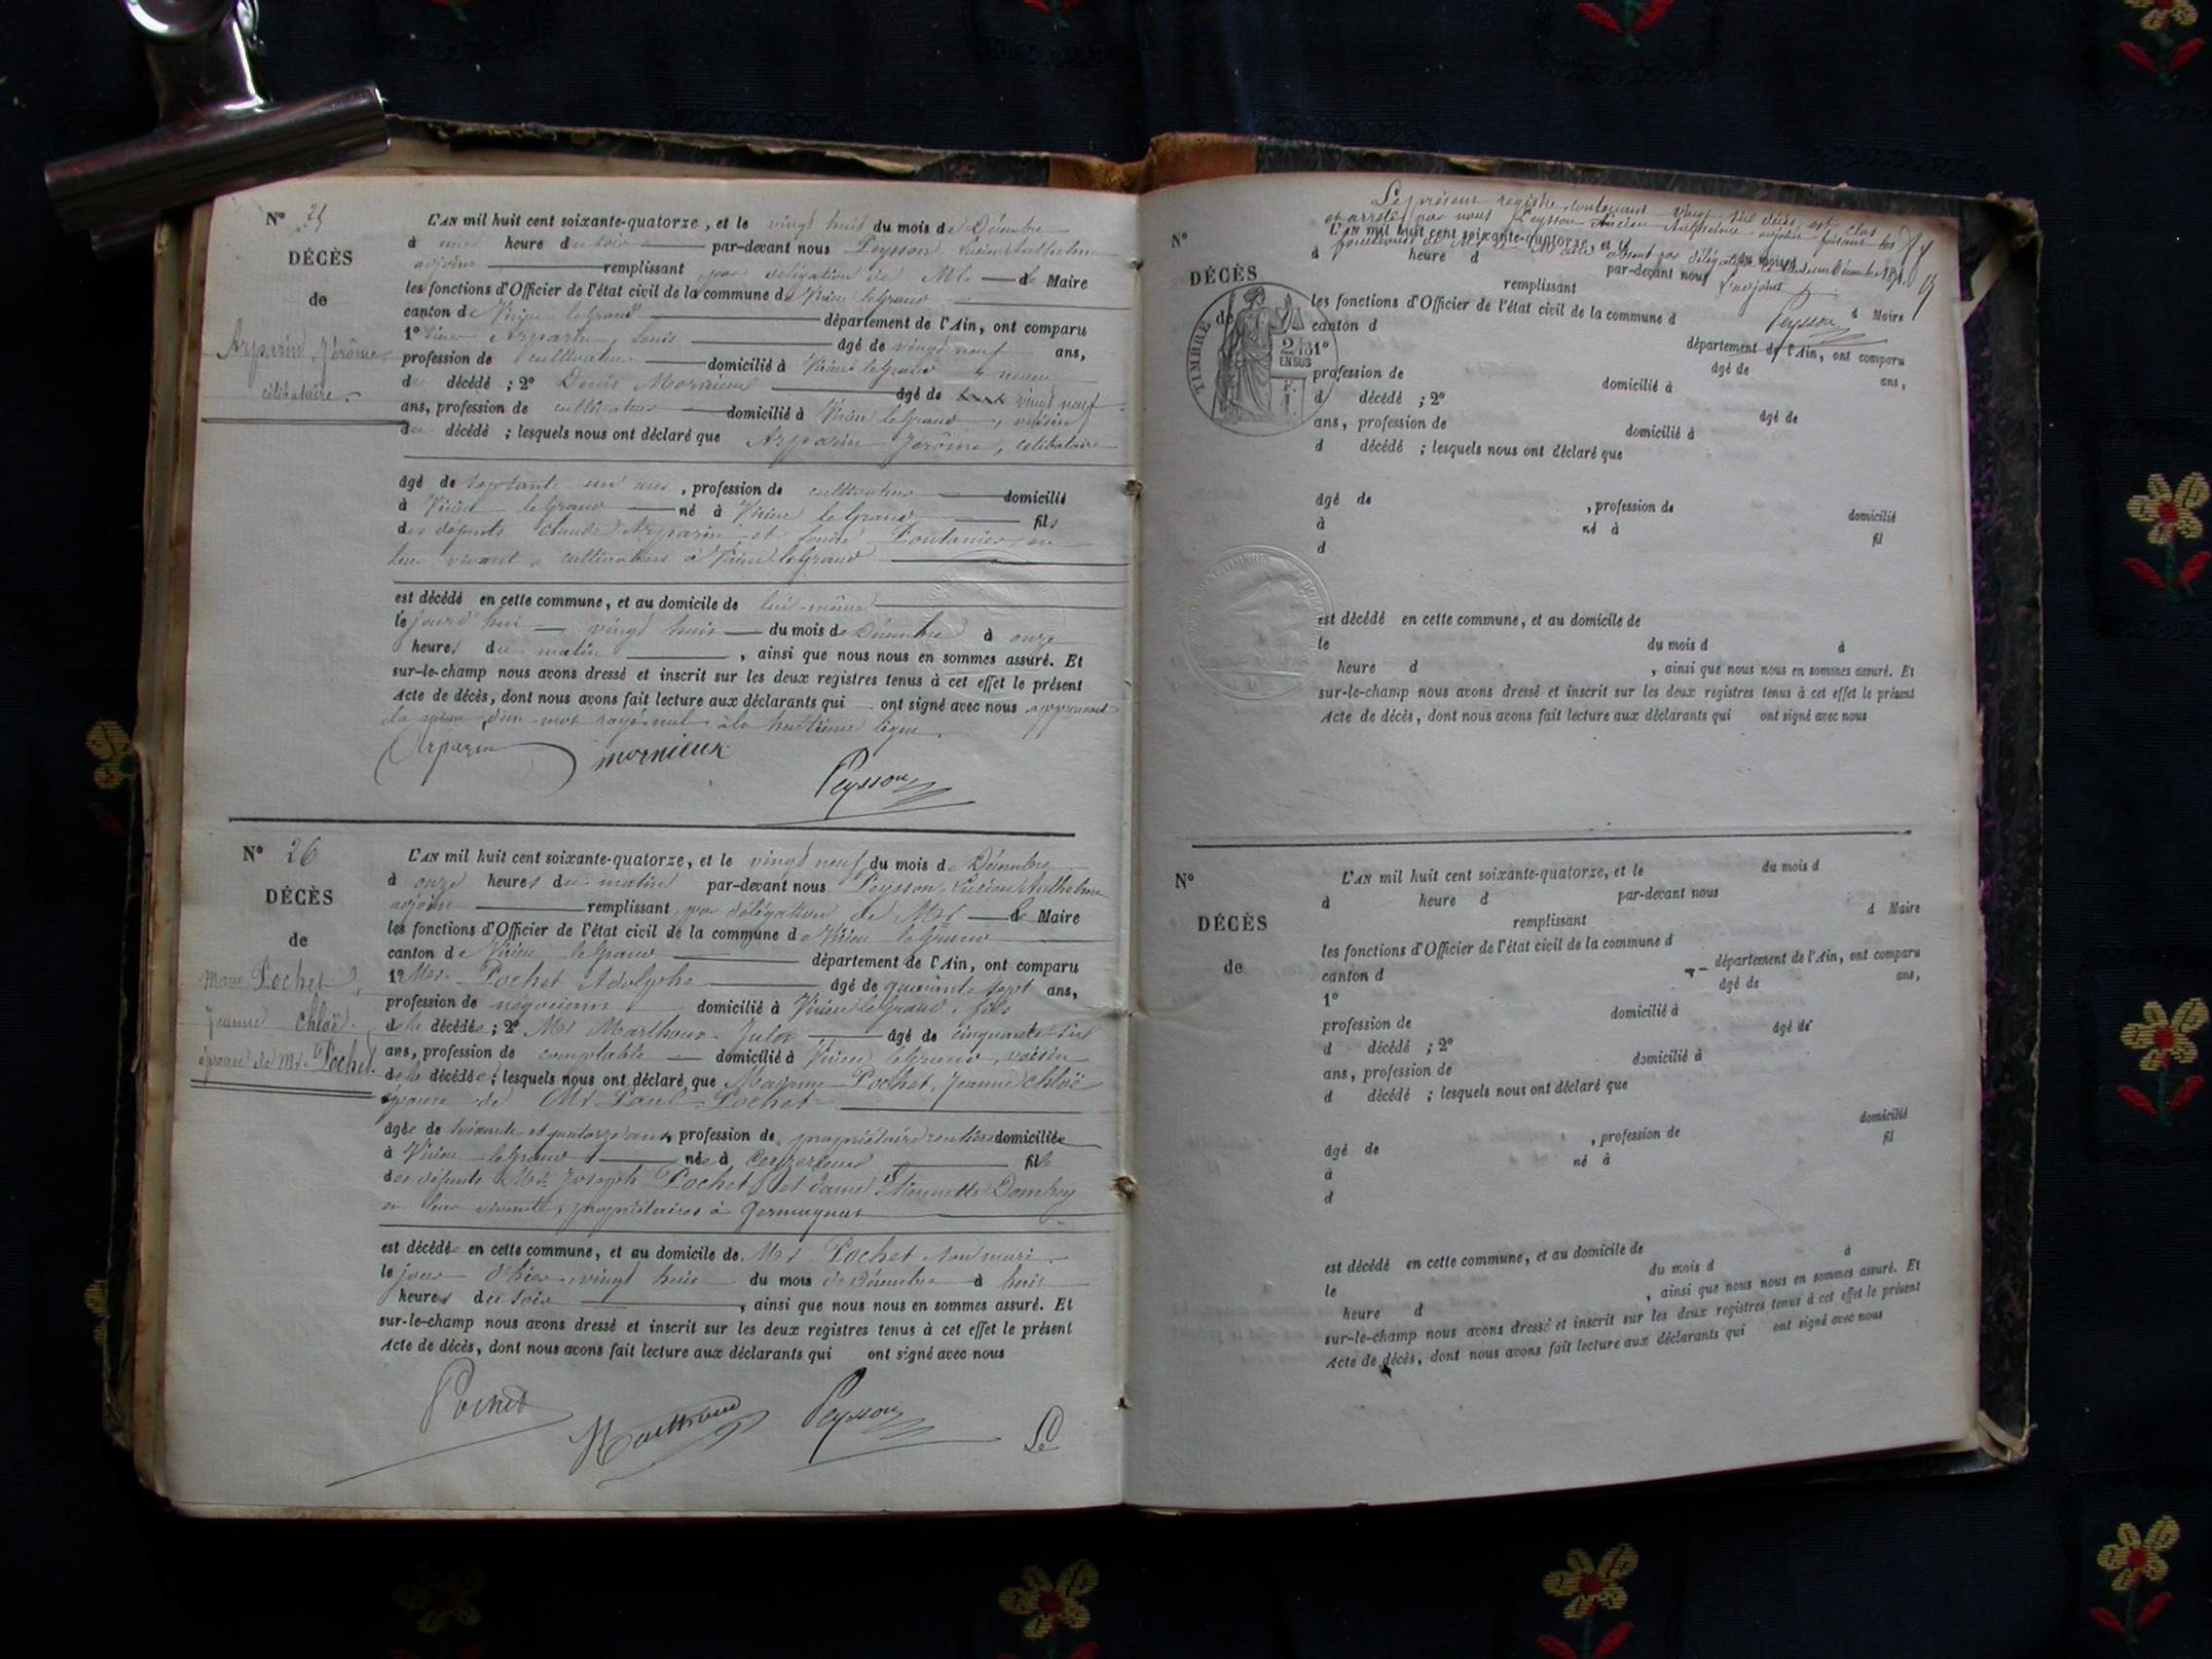 N° 25
DÉCÈS
de
Arparin Jérôme
célibataire.
L'AN mil huit cent soixante-quatorze, et le vingt huit du mois de Décembre
à une heure du soir par-devant nous Peysson, Lucien Anthelme
adjoint remplissant par délégation de Mr. le Maire
les fonctions d'Officier de l'état civil de la commune de Virieu le Grand
canton de Virieu le Grand département de l'Ain, ont comparu
1° Arparin, Louis âgé de vingt neuf ans,
profession de cultivateur domicilié à Virieu le Grand neveu
du décédé ; 2° Denis Mornieux âgé de vingt neuf
ans, profession de cultivateur domicilié à Virieu le Grand, voisin
du décédé ; lesquels nous ont déclaré que Arparin Jérôme, célibataire
âgé de septante un ans, profession de cultivateur domicilié
à Virieu le Grand né à Virieu le Grand fils
des défunts Claude Arparin et Poutanier, en
leur vivant, cultivateurs à Virieu le Grand
est décédé en cette commune, et au domicile de lui-même
le jourd'hui vingt huit du mois de Décembre à onze
heures du matin, ainsi que nous nous en sommes assuré. Et
sur-le-champ nous avons dressé et inscrit sur les deux registres tenus à cet effet le présent
Acte de décès, dont nous avons fait lecture aux déclarants qui ont signé avec nous approuvant
la rature d'un mot rayé nul à la huitième ligne.
Arparin mornieux
Peysson
N° 26
DÉCÈS
de
Mme Pochet,
Jeanne Chloé.
épouse de Mr. Pochet.
L'AN mil huit cent soixante-quatorze, et le vingt neuf du mois de Décembre
à onze heures du matin par-devant nous Peysson, Lucien Anthelme
adjoint remplissant par délégation de Mr le Maire
les fonctions d'Officier de l'état civil de la commune de Virieu le Grand
canton de Virieu le Grand département de l'Ain, ont comparu
1° Mr. Pochet Adolphe âgé de quarante sept ans,
profession de négociant domicilié à Virieu le Grand, fils
de la décédée ; 2° Mr Marthoux Jules âgé de cinquante
ans, profession de comptable domicilié à Virieu le Grand, voisin
de la décédée ; lesquels nous ont déclaré que Madame Pochet, Jeanne Chloé
épouse de Mr Paul Pochet
âgée de soixante et quatorze ans, profession de propriétaire rentière domiciliée
à Virieu le Grand née à Ceyzerieu fille
des défunts Mr. Joseph Pochet et dame Etiennette Dombey
en leur vivant, propriétaires à
est décédée en cette commune, et au domicile de Mr Pochet son mari
le jour d'hier vingt huit du mois de Décembre à huit
heures du soir, ainsi que nous nous en sommes assuré. Et
sur-le-champ nous avons dressé et inscrit sur les deux registres tenus à cet effet le présent
Acte de décès, dont nous avons fait lecture aux déclarants qui ont signé avec nous
Pochet Marthoux Peysson
Le présent registre contenant vingt six décès, est clos
et arrêté par nous Peysson Lucien Anthelme adjoint faisant les
fonctions de Mr le Maire absent par délégation Décembre 1874.
L'adjoint
Peysson
N°
DÉCÈS
de
TIMBRE
2/10
EN SUS
L'AN mil huit cent soixante-quatorze, et le du mois
à heure d par-devant nous
remplissant d Maire
les fonctions d'Officier de l'état civil de la commune d
canton d département de l'Ain, ont comparu
1° âgé de ans,
profession de domicilié à
d décédé ; 2° âgé de
ans, profession de domicilié à
d décédé ; lesquels nous ont déclaré que
âgé de , profession de domicilié
à né à fil
d
est décédé en cette commune, et au domicile de
le du mois d à
heure d , ainsi que nous nous en sommes assuré. Et
sur-le-champ nous avons dressé et inscrit sur les deux registres tenus à cet effet le présent
Acte de décès, dont nous avons fait lecture aux déclarants qui ont signé avec nous
N°
DÉCÈS
de
L'AN mil huit cent soixante-quatorze, et le du mois d
à heure d par-devant nous
remplissant d Maire
les fonctions d'Officier de l'état civil de la commune d
canton d département de l'Ain, ont comparu
1° âgé de ans,
profession de domicilié à
d décédé ; 2° âgé de
ans, profession de domicilié à
d décédé ; lesquels nous ont déclaré que
âgé de , profession de domicilié
à né à fil
d
est décédé en cette commune, et au domicile de
le du mois d à
heure d , ainsi que nous nous en sommes assuré. Et
sur-le-champ nous avons dressé et inscrit sur les deux registres tenus à cet effet le présent
Acte de décès, dont nous avons fait lecture aux déclarants qui ont signé avec nous